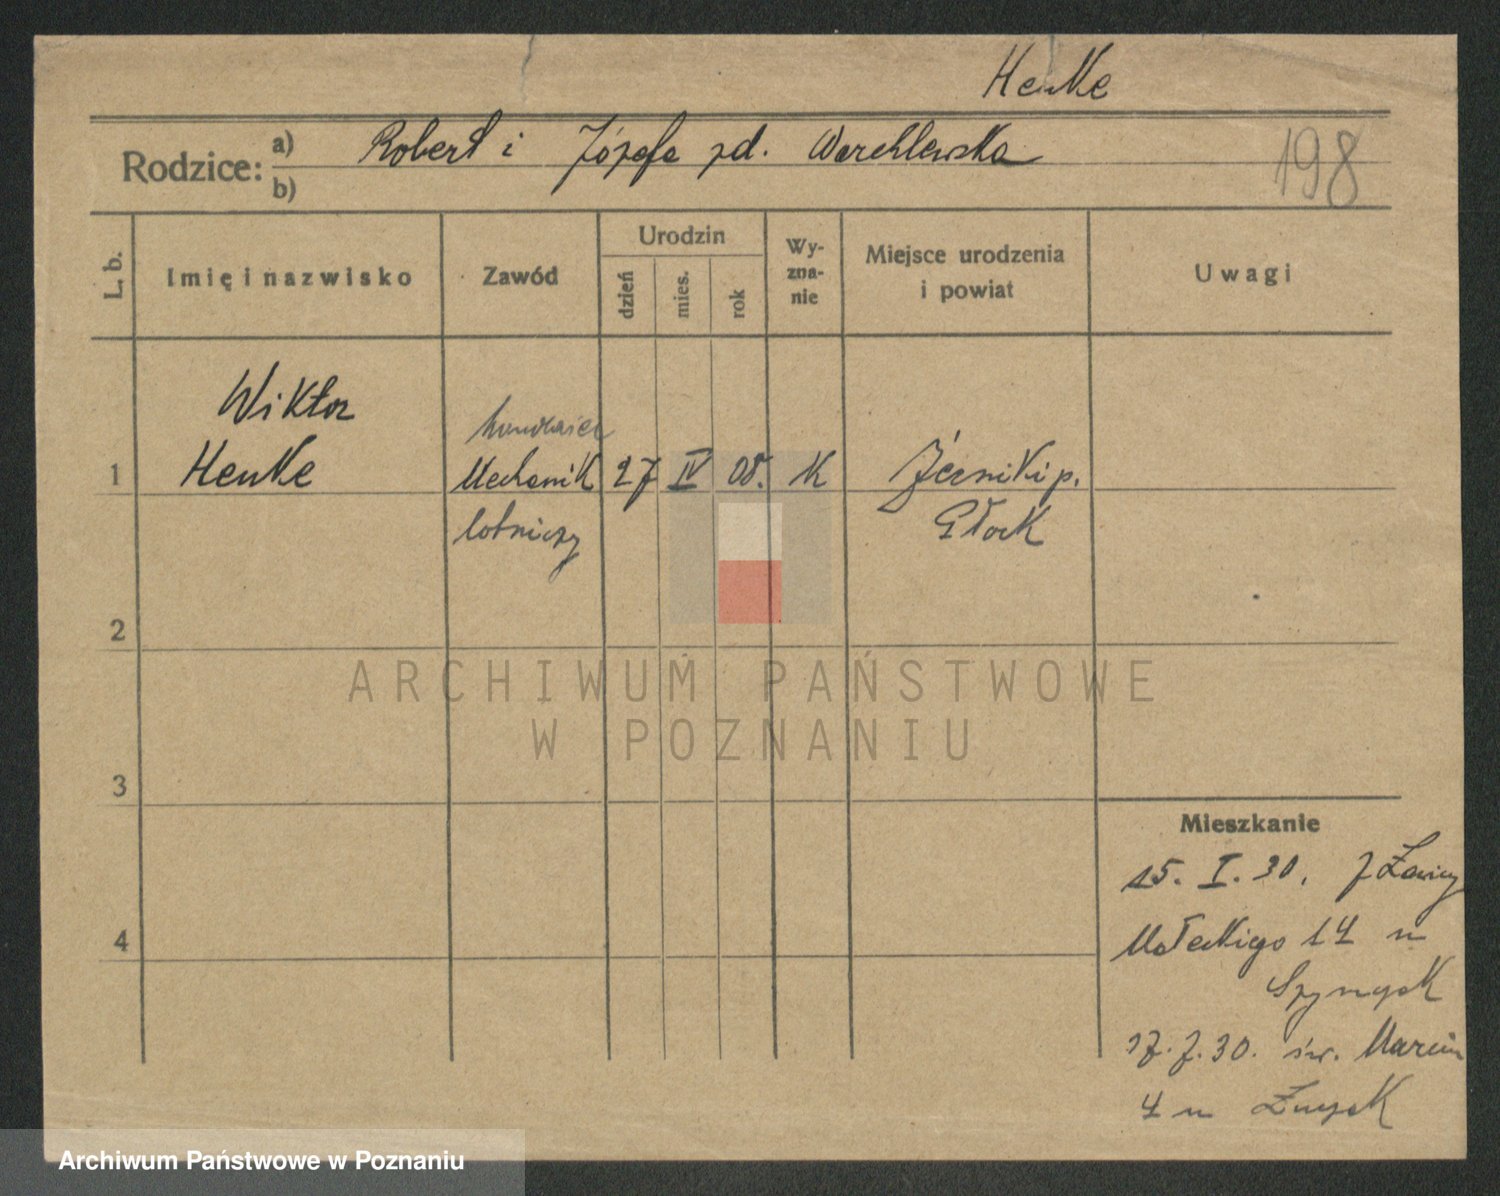 Henke
Rodzice: a) Robert i Józefa zd. Warchlewska
b)
198
L. b.
Imię i nazwisko
Zawód
Urodzin
dzień
mies.
rok
Wy-
zna-
nie
Miejsce urodzenia
i powiat
Uwagi
Wiktor
1 Henke
Mechanik
lotniczy
27 IV 08. K
Żerniki p.
2
3
4
ARCHIWUM PAŃSTWOWE
W POZNANIU
Mieszkanie
15. I. 30. z Ławicy
Małeckiego 14 u
17. 7. 30. św. Marcin
4 u
Archiwum Państwowe w Poznaniu